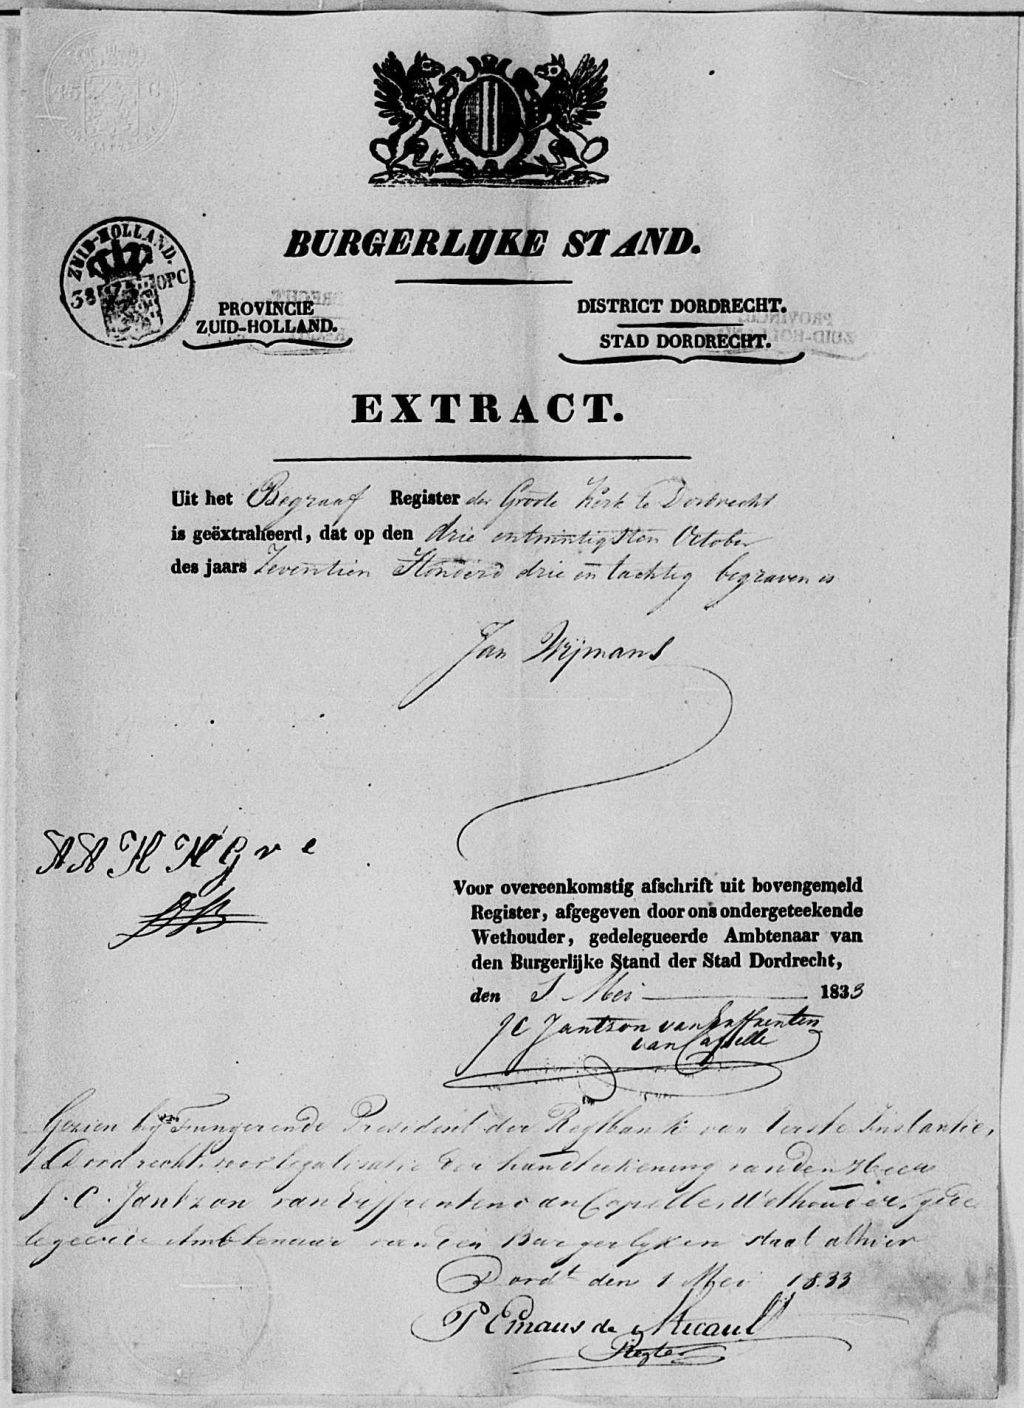 BURGERLIJKE STAND.
ZUID-HOLLAND.
38 OPC
PROVINCIE
ZUID-HOLLAND.
DISTRICT DORDRECHT.
STAD DORDRECHT.
EXTRACT.
Uit het Begraaf Register der Groote Kerk te Dordrecht
is geëxtraheerd, dat op den drie entwintigsten October
des jaars Zeventien Honderd drie en tachtig begraven is
Jan Wijmans
Voor overeenkomstig afschrift uit bovengemeld
Register, afgegeven door ons ondergeteekende
Wethouder, gedelegueerde Ambtenaar van
den Burgerlijke Stand der Stad Dordrecht,
den 1 Mei 1833
J C Jantzon van Erffrenten
van Capelle
Gezien bij Fungerende President der Regtbank van Eerste Instantie,
te Dordrecht, voor legalisatie der handteekening van den Heer
J. C. Jantzon van Erffrenten van Capelle, Wethouder, gede
legeerde Ambtenaar van den Burgerlyken staat alhier
Dordt den 1 Mei 1833
P Emaus de
Regter